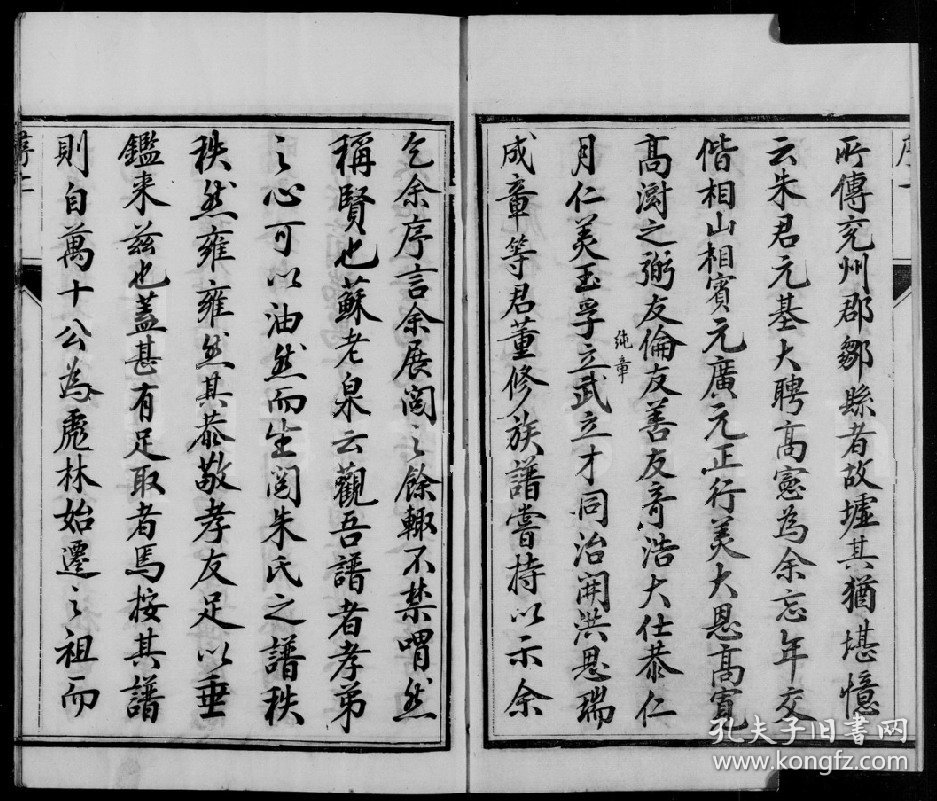 所傳兖州郡鄒縣者故墟其猶堪憶
云朱君元基大聘高憲為余忘年交
偕相山相賓元廣元正行美大恩高寛
高澍之弼友倫友善友竒浩大仕恭仁
純章
月仁美玉孚立武立才同治開洪恩瑞
成章等君董修族譜嘗持以示余
乞余序言余展閱之餘輙不禁喟然
稱賢也蘇老泉云觀吾譜者孝弟
之心可以油然而生閱朱氏之譜秩
秩然雍雍然其恭敬孝友足以垂
鑑来兹也蓋甚有足取者焉按其譜
則自萬十公為鳳林始遷之祖而
序二
孔夫子旧书网
www.kongfz.com